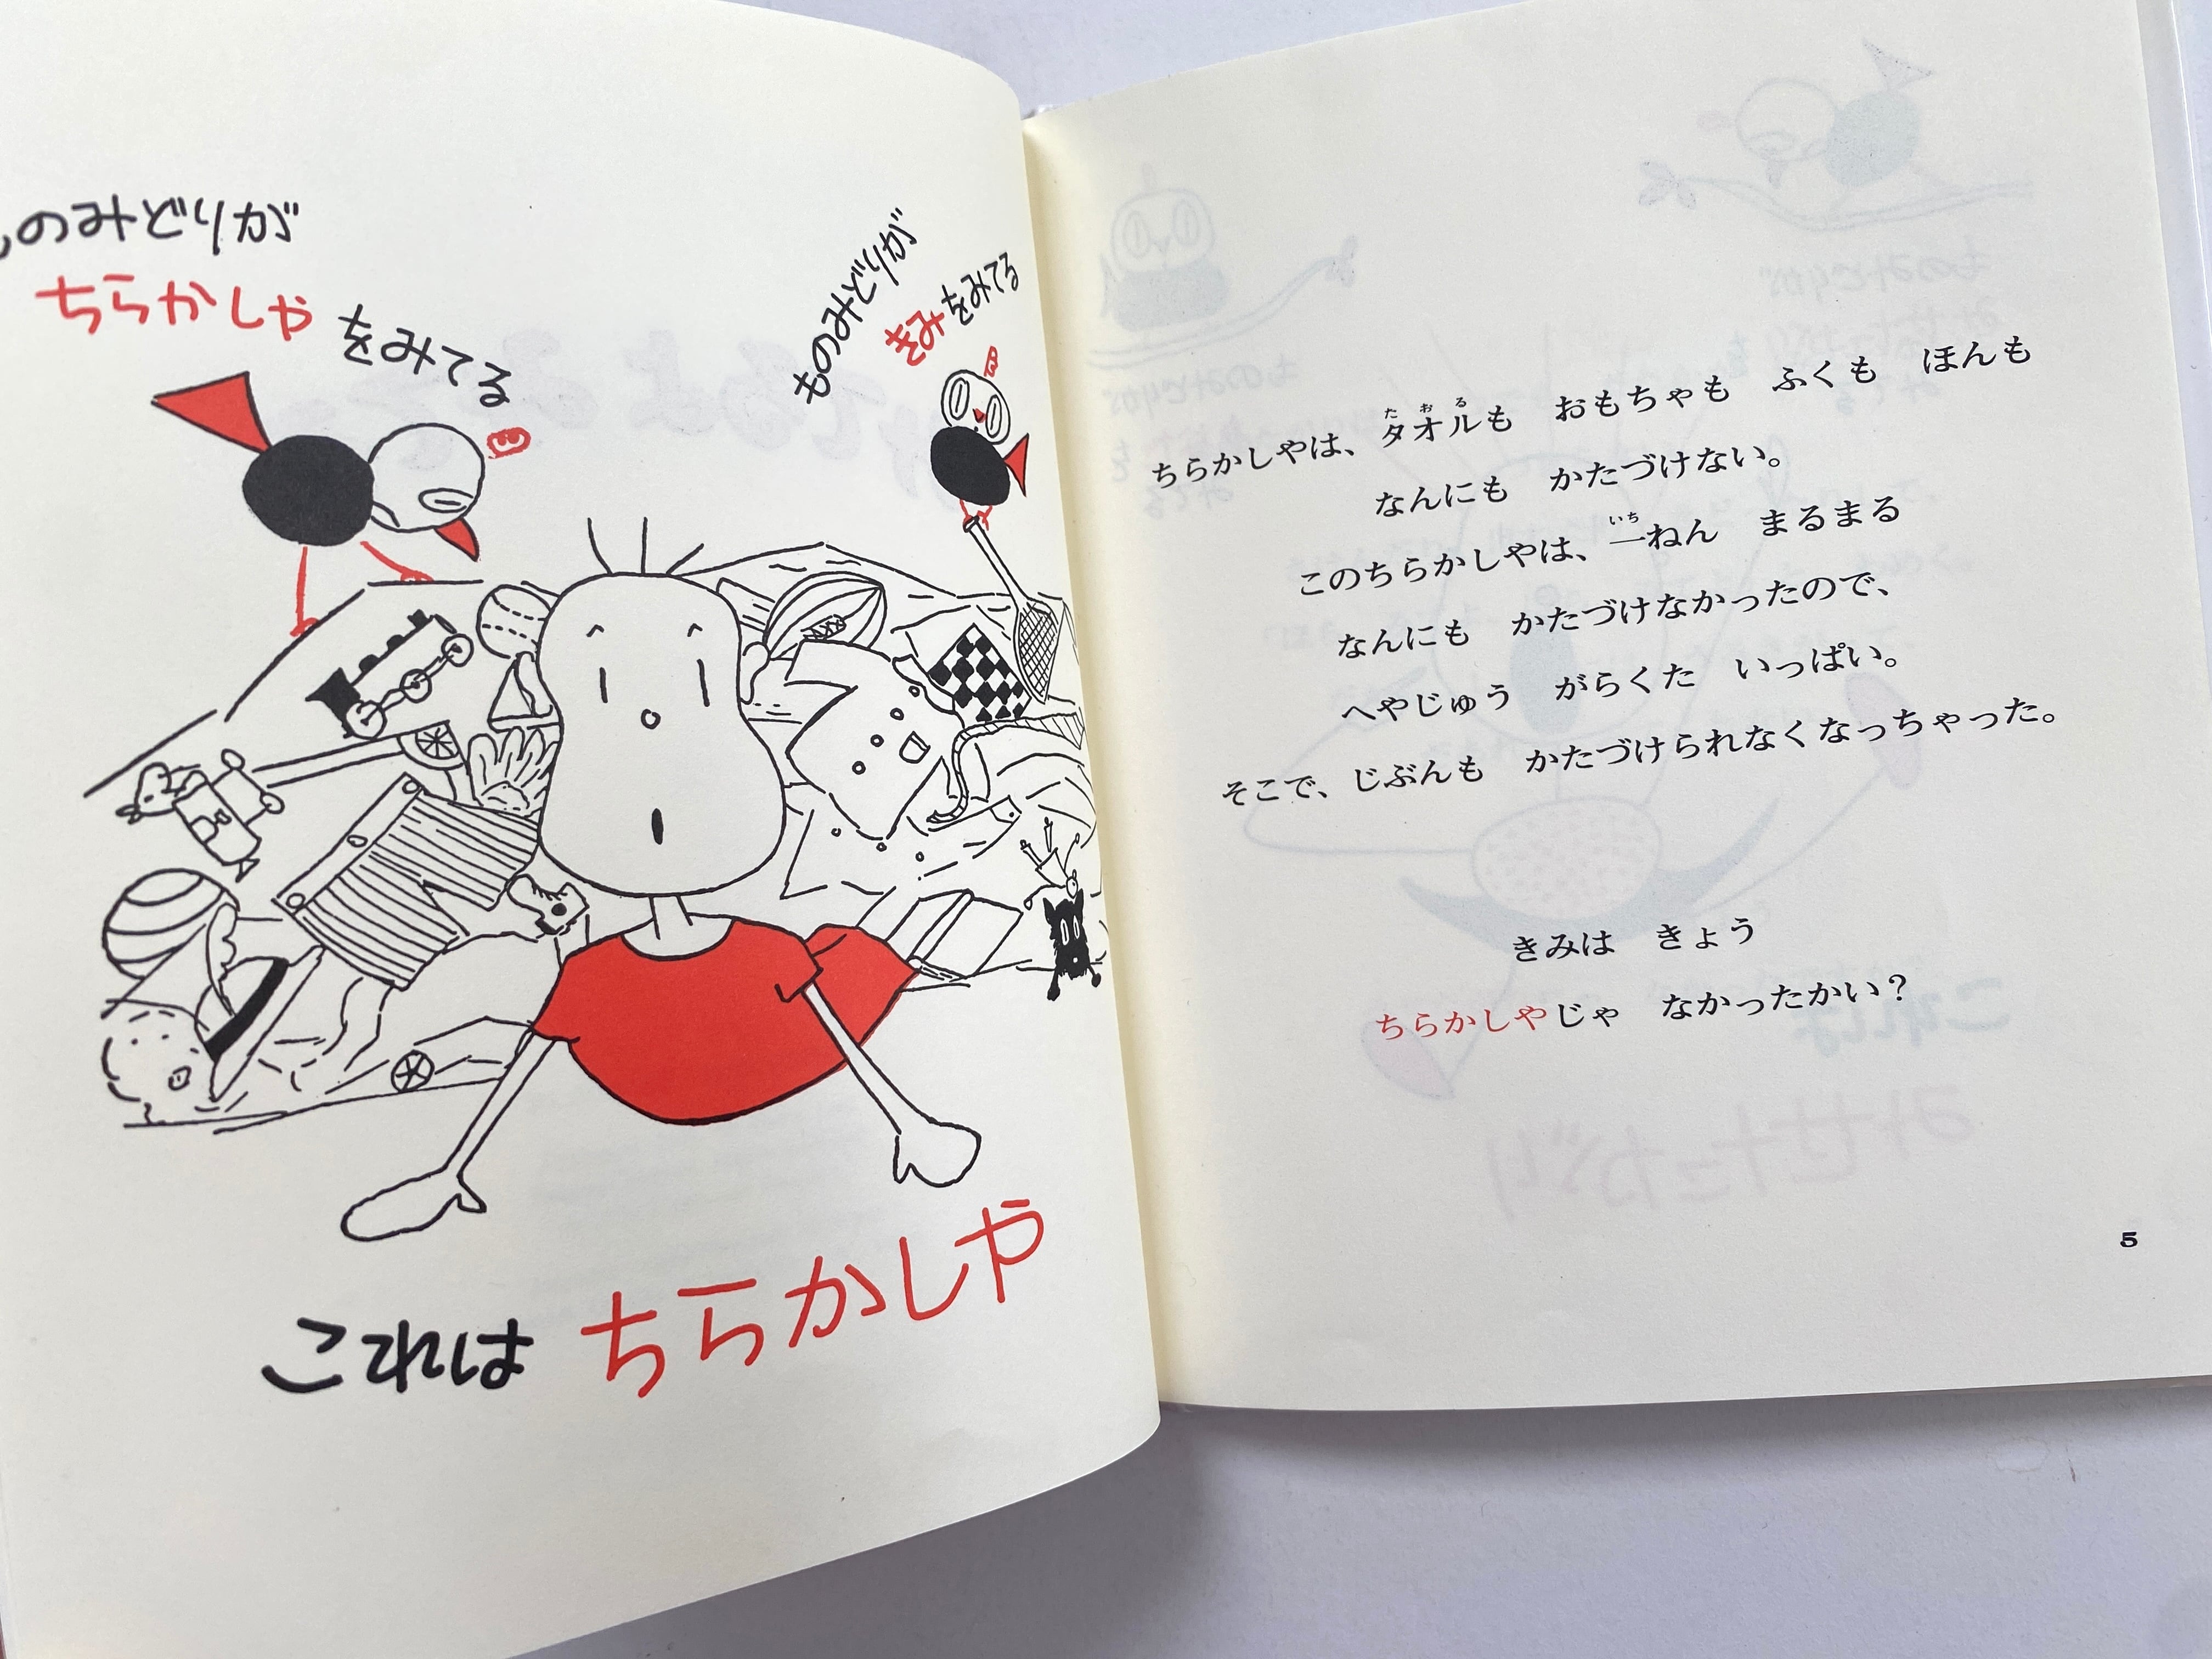 のみどりが
ちらかしや をみてる
ものみどりが
きみをみてる
これは ちらかしや
ちらかしやは、タオルも おもちゃも ふくも ほんも
たおる
なんにも かたづけない。
このちらかしやは、一ねん まるまる
いち
なんにも かたづけなかったので、
へやじゅう がらくた いっぱい。
そこで、じぶんも かたづけられなくなっちゃった。
きみは きょう
ちらかしやじゃ なかったかい?
5